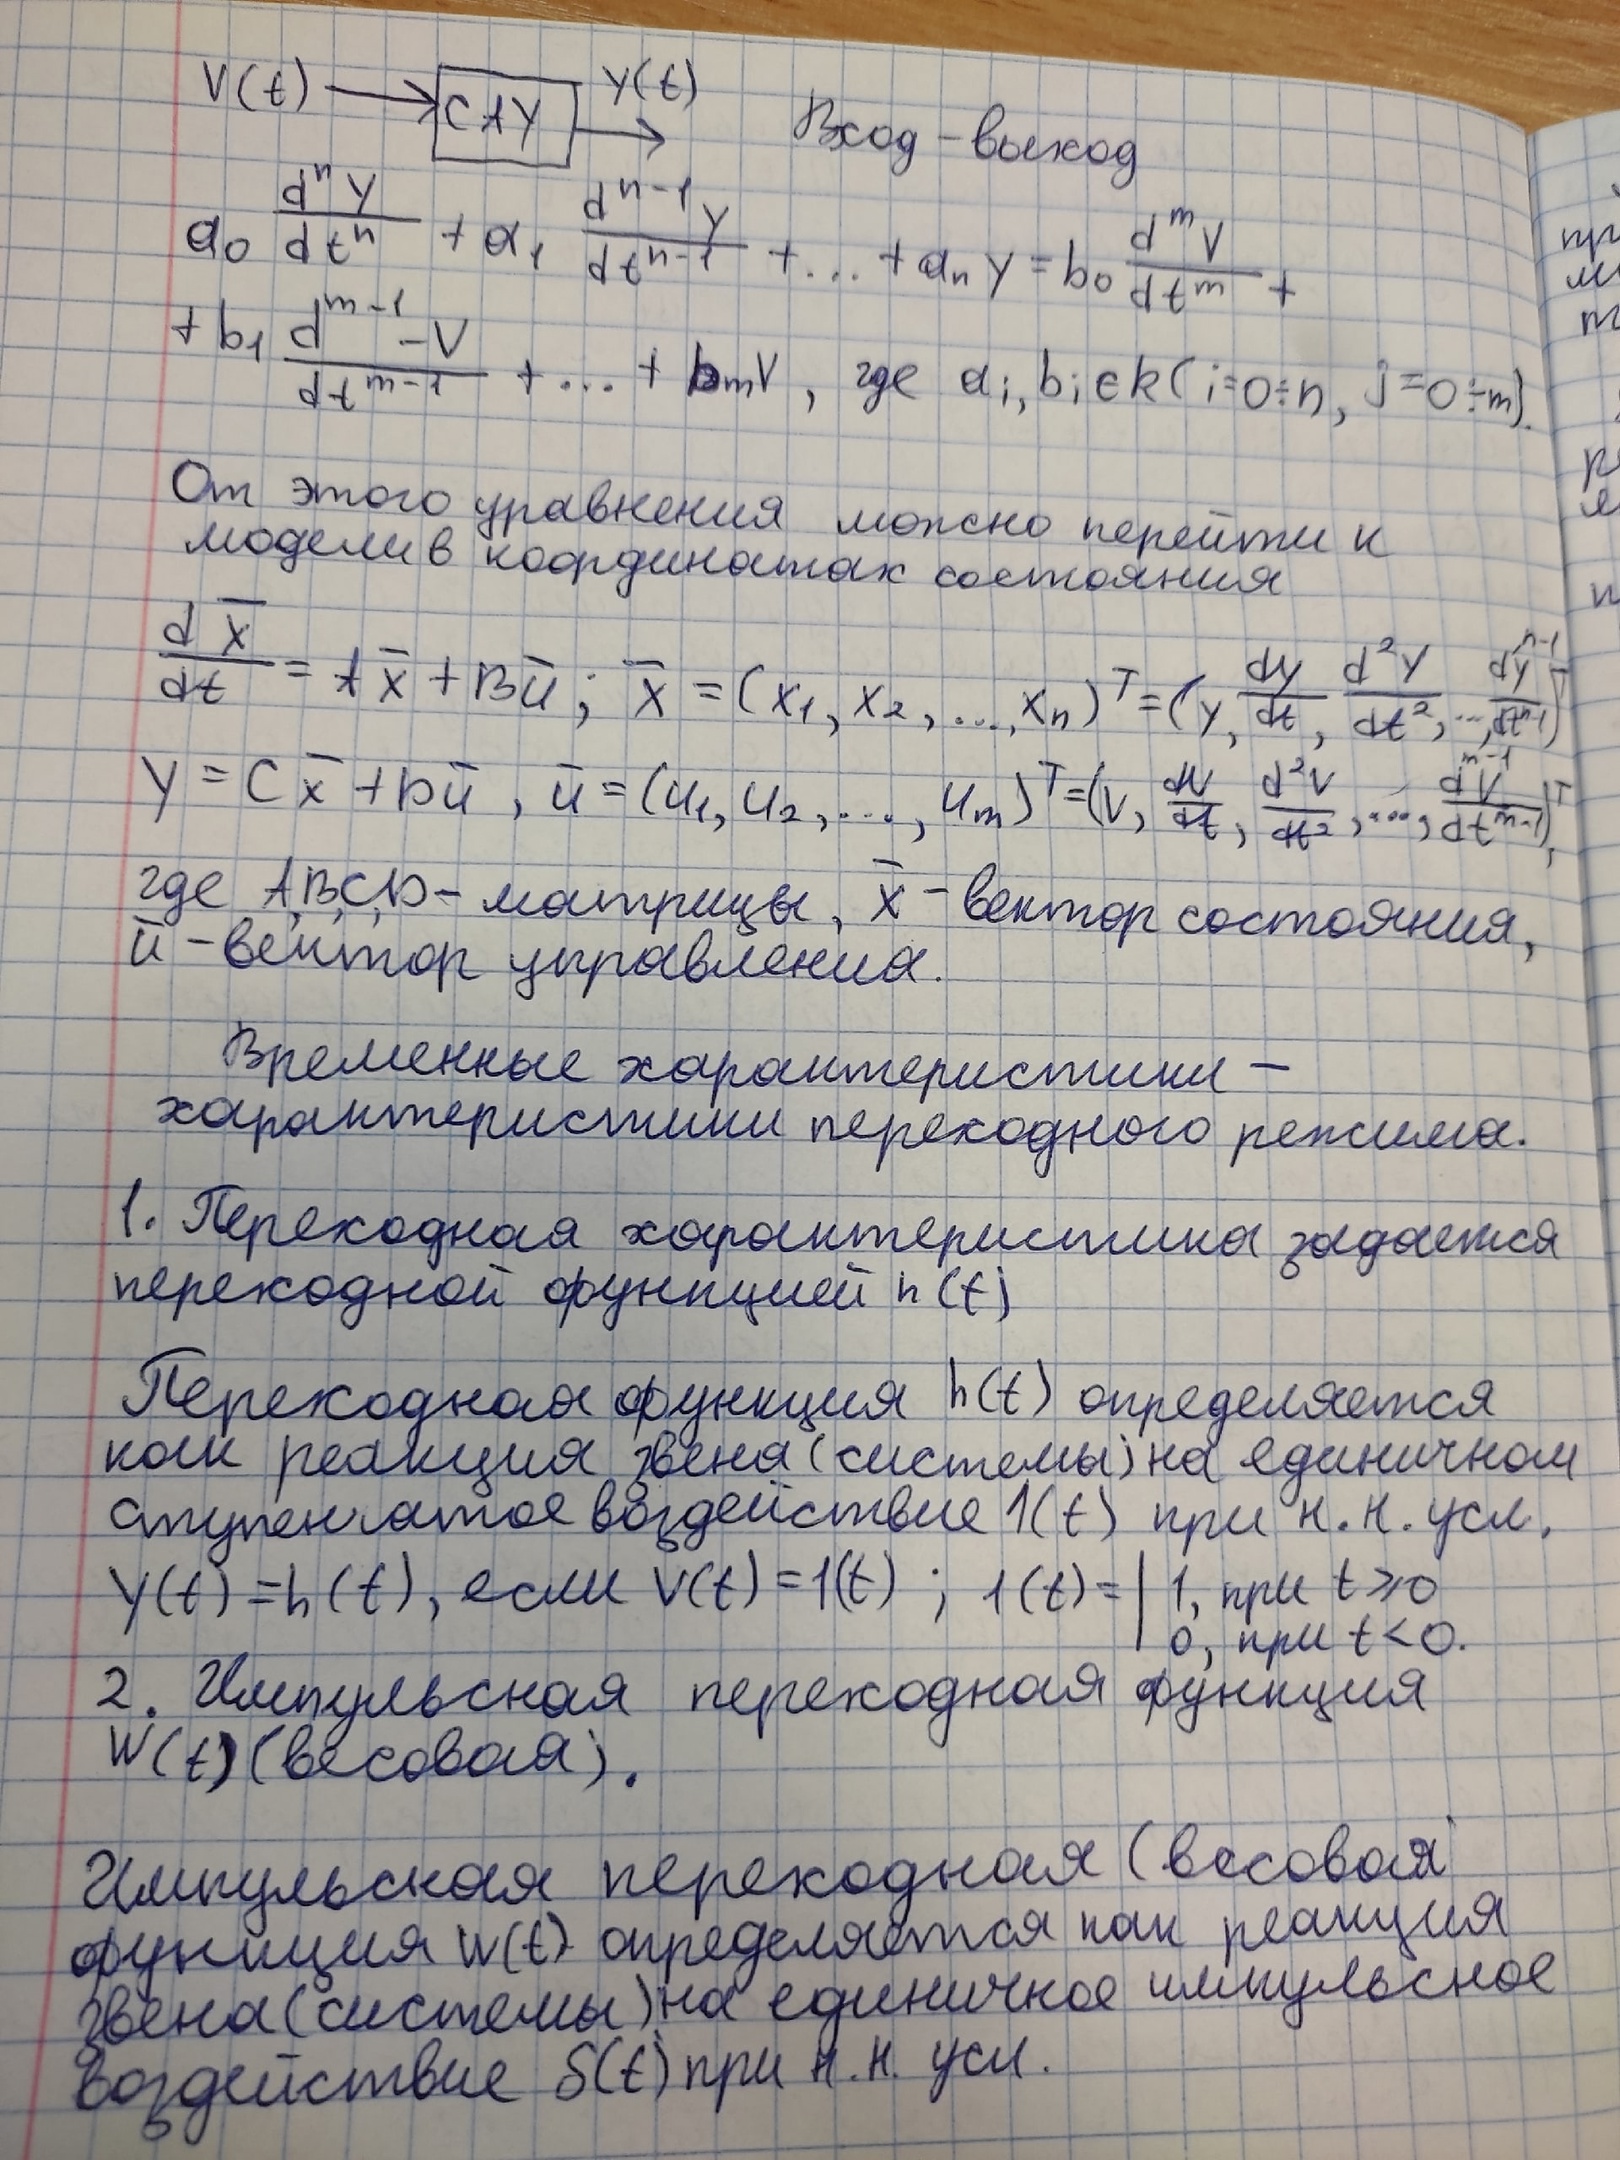 V(t) → САУ → y(t) Вход - выход
a₀ dⁿy/dtⁿ + a₁ dⁿ⁻¹y/dtⁿ⁻¹ + ... + aₙ y = b₀ dᵐV/dtᵐ +
+ b₁ dᵐ⁻¹ - V/dtᵐ⁻¹ + ... + bₘV, где aᵢ, bᵢ ∈ k (i=0÷n, j=0÷m).
От этого уравнения можно перейти к
модели в координатах состояния
dx̅/dt = Ax̅ + Bu̅; x̅ = (x₁, x₂, ..., xₙ)ᵀ = (y, dy/dt, d²y/dt², ..., dyⁿ⁻¹/dtⁿ⁻¹)ᵀ
y = Cx̅ + Du̅, u̅ = (u₁, u₂, ..., uₘ)ᵀ = (V, dV/dt, d²V/dt², ..., dᵐ⁻¹V/dtᵐ⁻¹)ᵀ,
где A,B,C,D - матрицы, x̅ - вектор состояния,
u̅ - вектор управления.
Временные характеристики -
характеристики переходного режима.
1. Переходная характеристика задается
переходной функцией h(t)
Переходная функция h(t) определяется
как реакция звена (системы) на единичном
ступенчатое воздействие 1(t) при н.н. усл.
y(t) = h(t), если V(t) = 1(t); 1(t) = | 1, при t ≥ 0
0, при t < 0.
2. Импульсная переходная функция
W(t) (весовая).
Импульсная переходная (весовая
функция W(t) определяется как реакция
звена (системы) на единичное импульсное
воздействие δ(t) при н.н. усл.